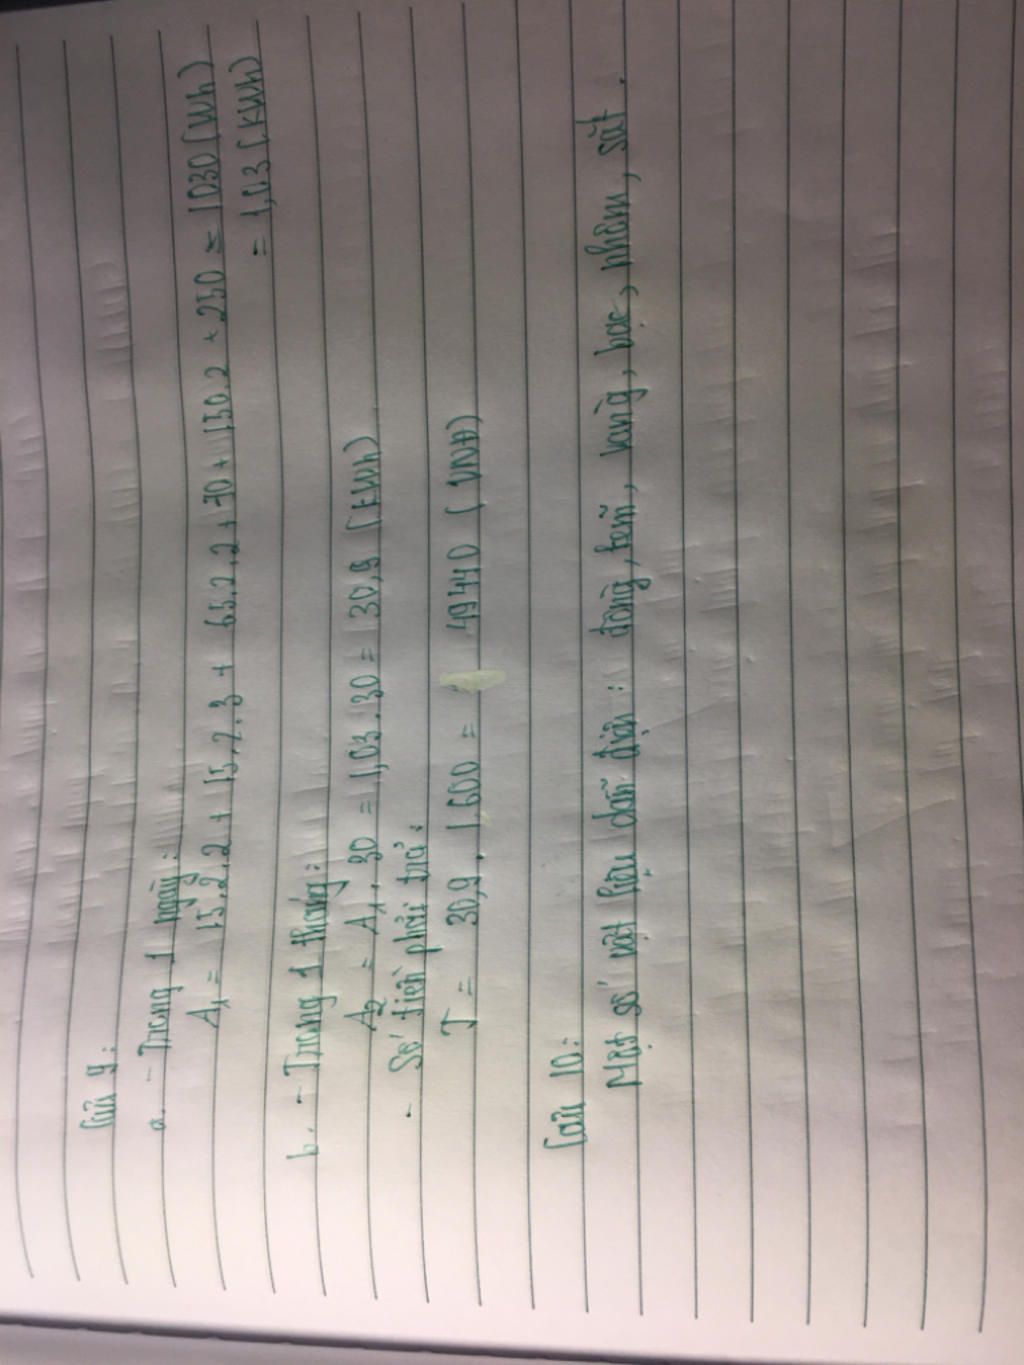 Câu 9:
a. - Trong 1 ngày:
A₁ = 15.2.2 + 15.2.3 + 65.2.2 + 70 + 130.2 + 250 = 1030 (Wh)
= 1,03 (KWh)
b. - Trong 1 tháng:
A₂ = A₁.30 = 1,03.30 = 30,9 (KWh)
- Số tiền phải trả:
T = 30,9.1600 = 49440 (VNĐ)
Câu 10:
Một số vật liệu dẫn điện: đồng, kẽm, vàng, bạc, nhôm, sắt.